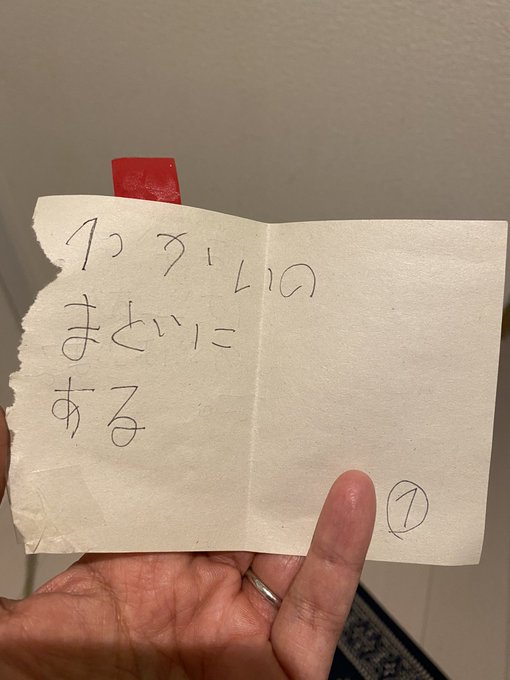 1っかいの
まどに
ある
①